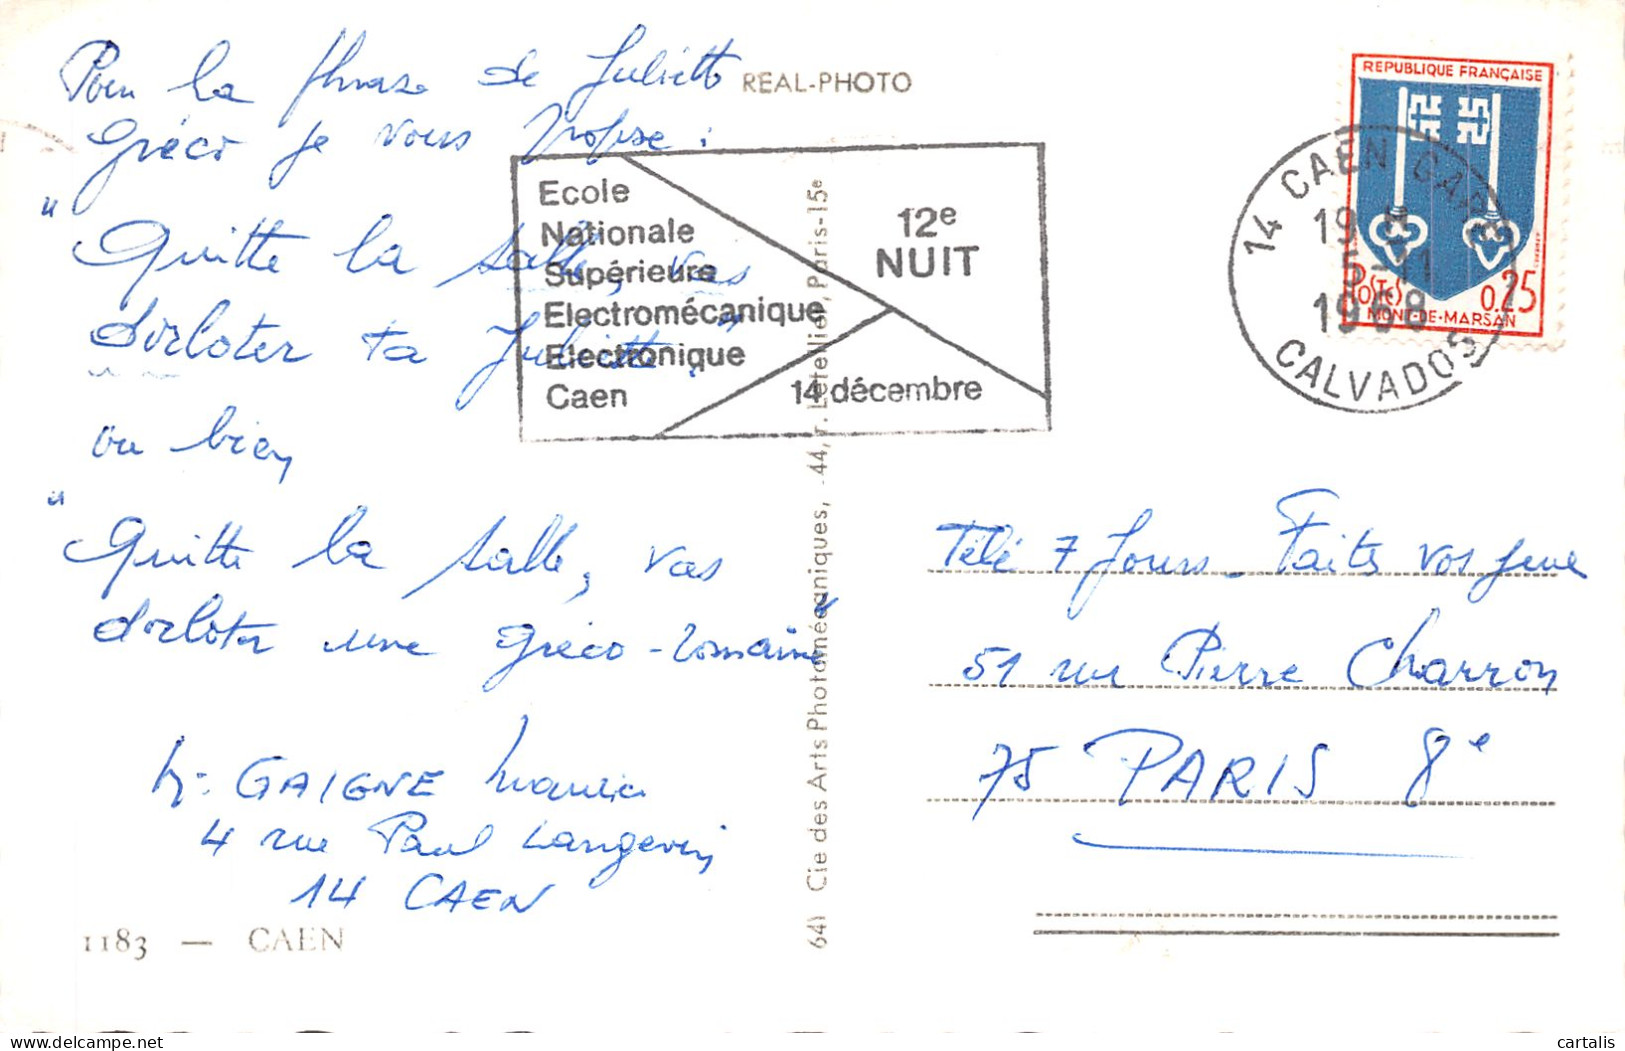 Pour la phrase de Juliette
Gréco je vous propose :
"Quitte la salle, vas
dorloter ta Juliette"
ou bien
"Quitte la salle, vas
dorloter une gréco-romaine"
M. GAIGNE Maurice
4 rue Paul Langevin
14 CAEN
1183 — CAEN
REAL-PHOTO
Ecole
Nationale
Supérieure
Electromécanique
Electronique
Caen
12e
NUIT
14 décembre
641 Cie des Arts Photomécaniques, - 44, r. Letellier, Paris-15e
REPUBLIQUE FRANÇAISE
POSTES 0,25
MONT-DE-MARSAN
14 CAEN GARE
19 H
5-11
1968
CALVADOS
Télé 7 Jours - Faites vos jeux
51 rue Pierre Charron
75 PARIS 8e
cartalis